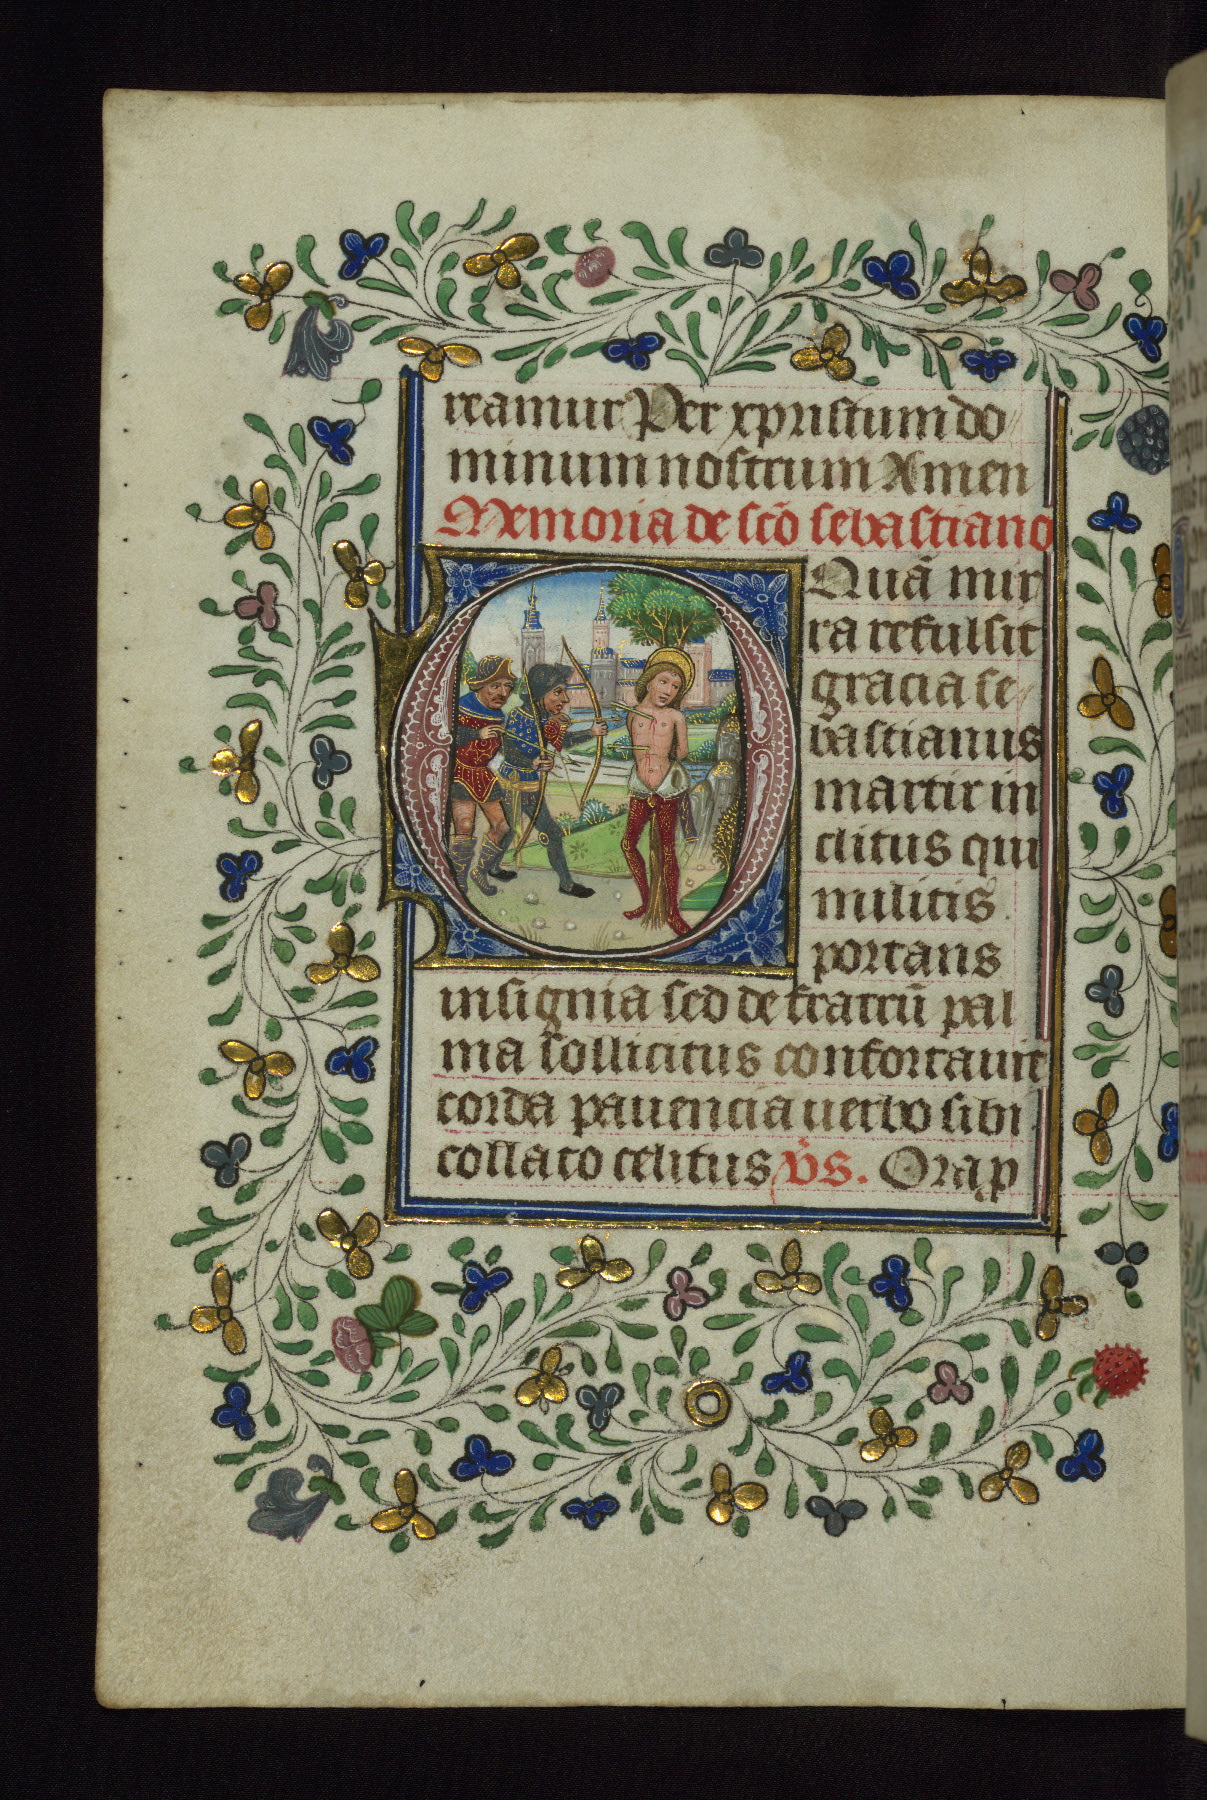 reamur Per xpristum do
minum nostrum Amen
Memoria de scō sebastiano
Quā mir
ra refulsit
gracia se
bastianus
martir in
clitus qui
militis
portans
insignia sed de fratrū pal
ma sollicitus confortauit
corda pauencia uerbo sibi
collato celitus v̄s. Ora p